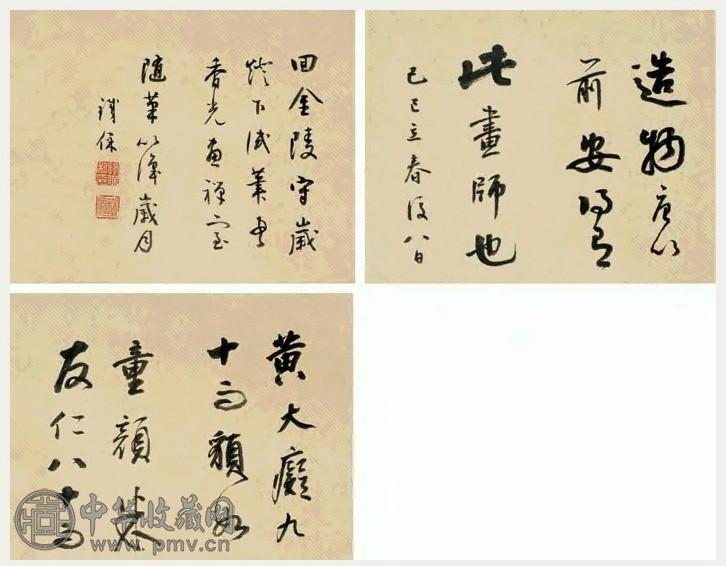 造物唐以
前安得有
此畫師也
己巳立春後八日
金陵守歲
燈下試筆書
香光畫禪室
隨筆以歲月
鐵保
黃大癡九
十而貌如
童顏米
友仁八十而
中华收藏网
www.pmv.cn